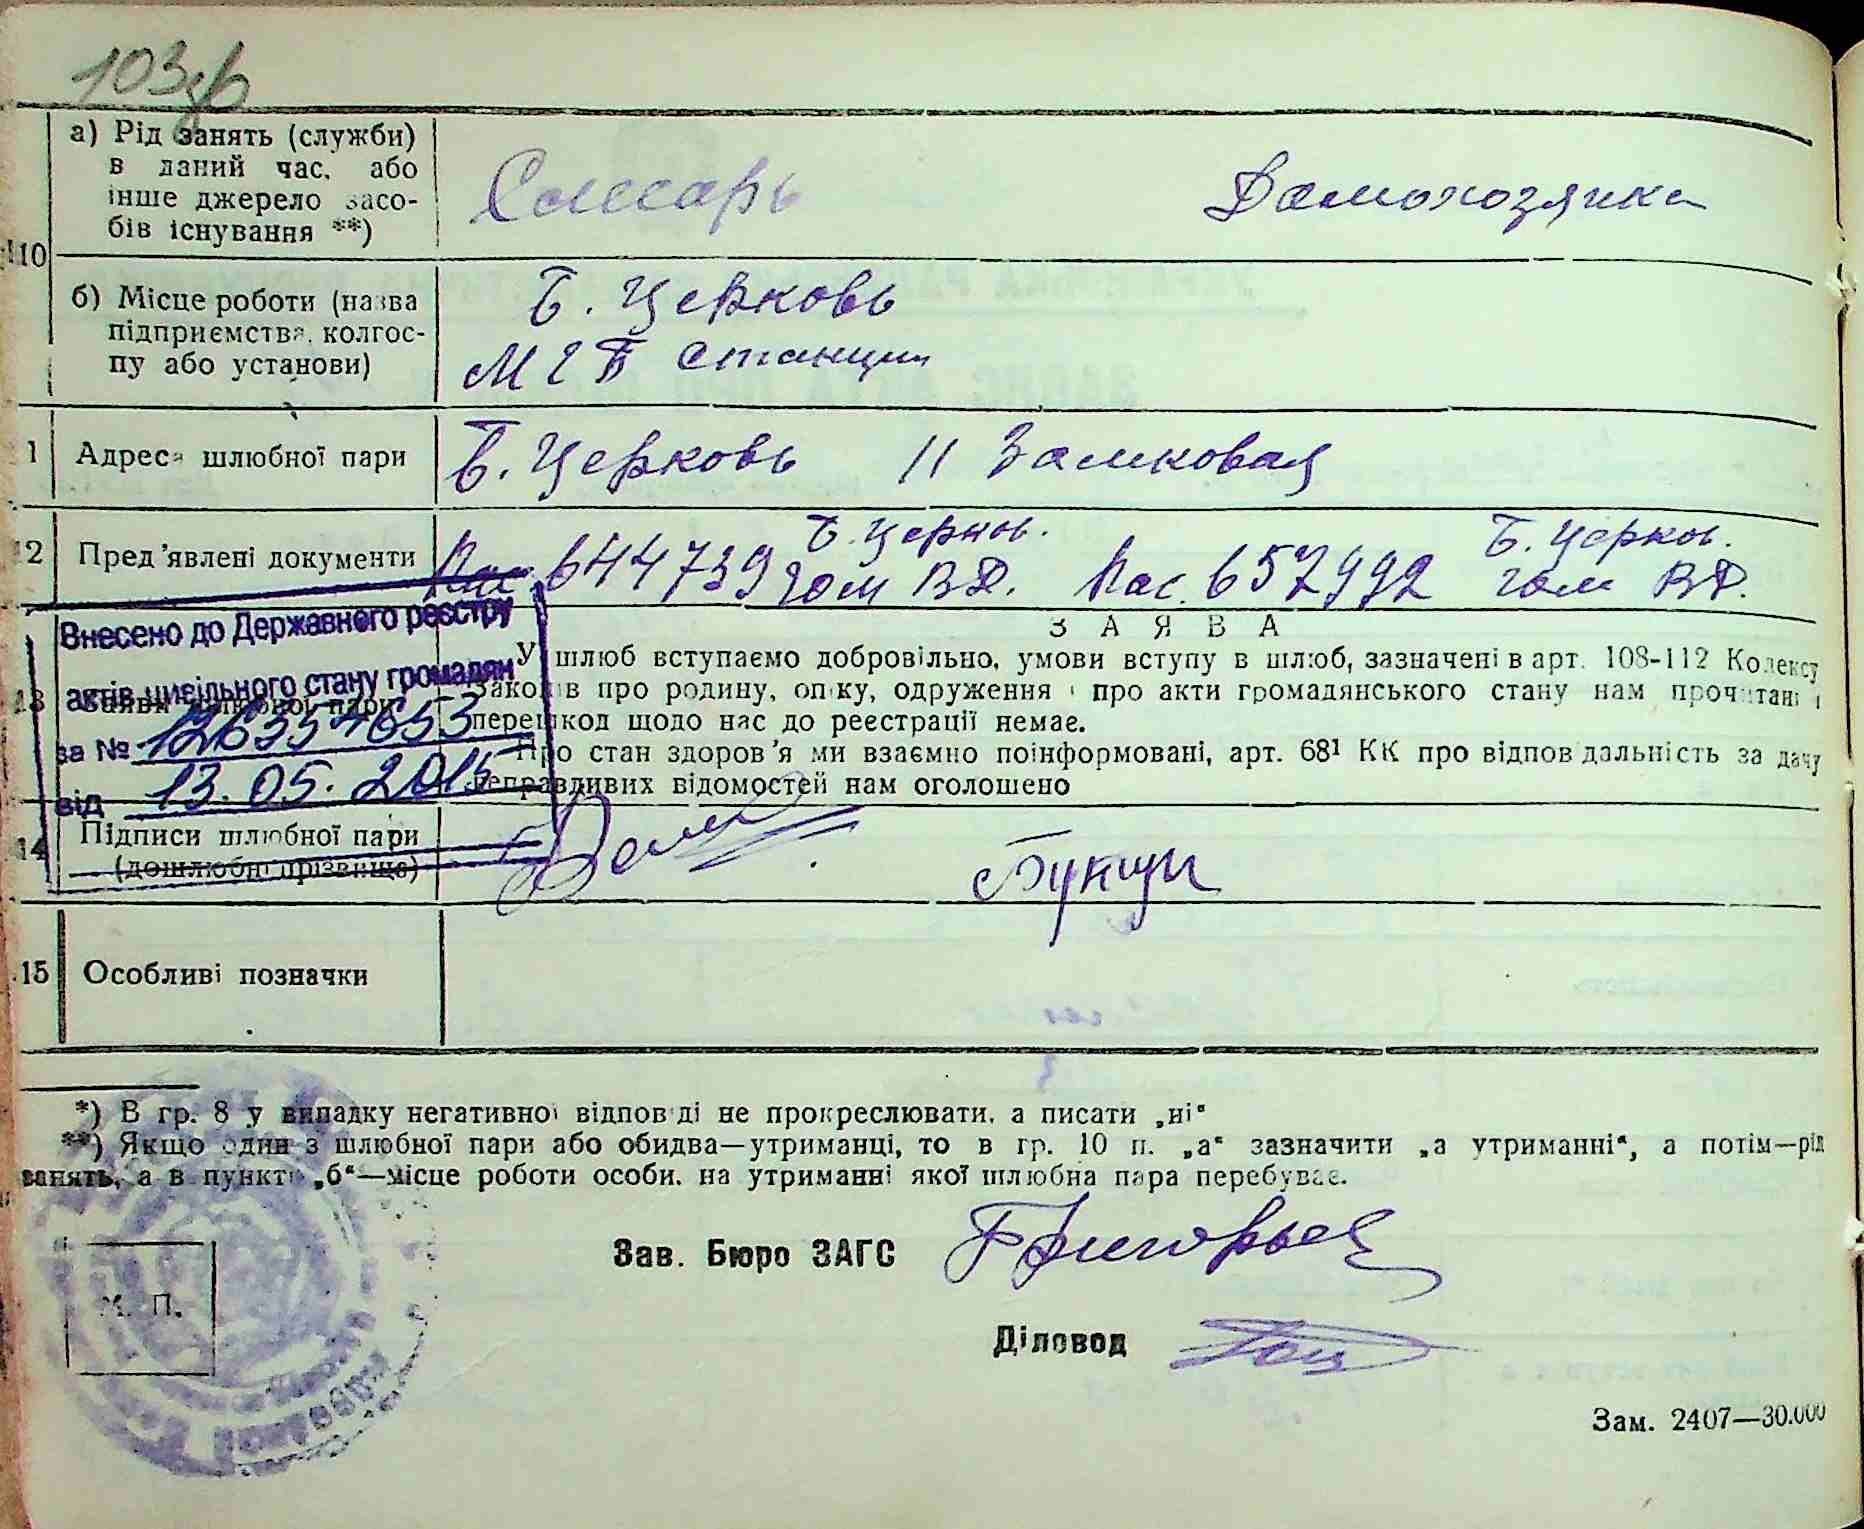 103зв
10
а) Рід занять (служби)
в даний час, або
інше джерело засо-
бів існування **)
Слесарь
Домохозяйка
б) Місце роботи (назва
підприємства, колгос-
пу або установи)
Б. Церковь
М Т Б станции
1
Адреса шлюбної пари
Б. Церковь 11 Замковая
2
Пред'явлені документи
Пас. 644739 Б. Церков. гом ВД. Пас. 657992 Б. Церков. гом ВД.
Внесено до Державного реєстру
актів цивільного стану громадян
за №
від 13.05.2015
13
Заява шлюбної пари
З А Я В А
У шлюб вступаємо добровільно, умови вступу в шлюб, зазначені в арт. 108-112 Кодексу
законів про родину, опіку, одруження і про акти громадянського стану нам прочитані і
перешкод щодо нас до реєстрації немає.
Про стан здоров'я ми взаємно поінформовані, арт. 68¹ КК про відповідальність за дачу
неправдивих відомостей нам оголошено
14
Підписи шлюбної пари
(дошлюбні прізвища)
15
Особливі позначки
*) В гр. 8 у випадку негативної відповіді не прокреслювати, а писати „ні“
**) Якщо один з шлюбної пари або обидва—утриманці, то в гр. 10 п. „а“ зазначити „а утриманні“, а потім—рід
занять, а в пункті „б“—місце роботи особи, на утриманні якої шлюбна пара перебуває.
Зав. Бюро ЗАГС
М. П.
Діловод
Зам. 2407—30.000